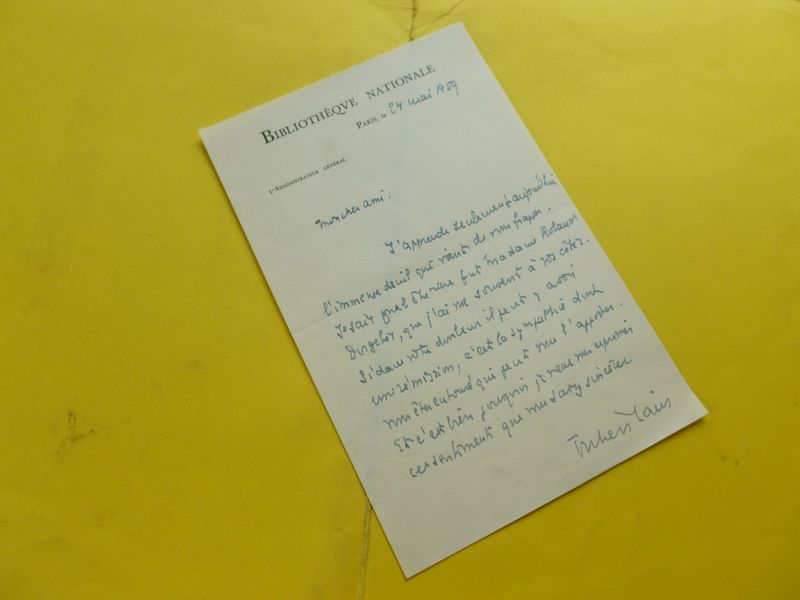 BIBLIOTHÈQVE NATIONALE
PARIS, le 24 mai 1959
L'ADMINISTRATEUR GÉNÉRAL
Mon cher ami.
J'apprends seulement aujourd'hui
l'immense deuil qui vient de vous frapper.
Je sais quel être rare fut Madame Roland
Dorgelès, que j'ai vue souvent à vos côtés.
Si dans votre douleur il peut y avoir
une rémission, c'est la sympathie dont
vous êtes entouré qui peut vous l'apporter.
Et c'est bien pourquoi, je veux vous exprimer
ces sentiments que vous savez sincères
Julien Cain